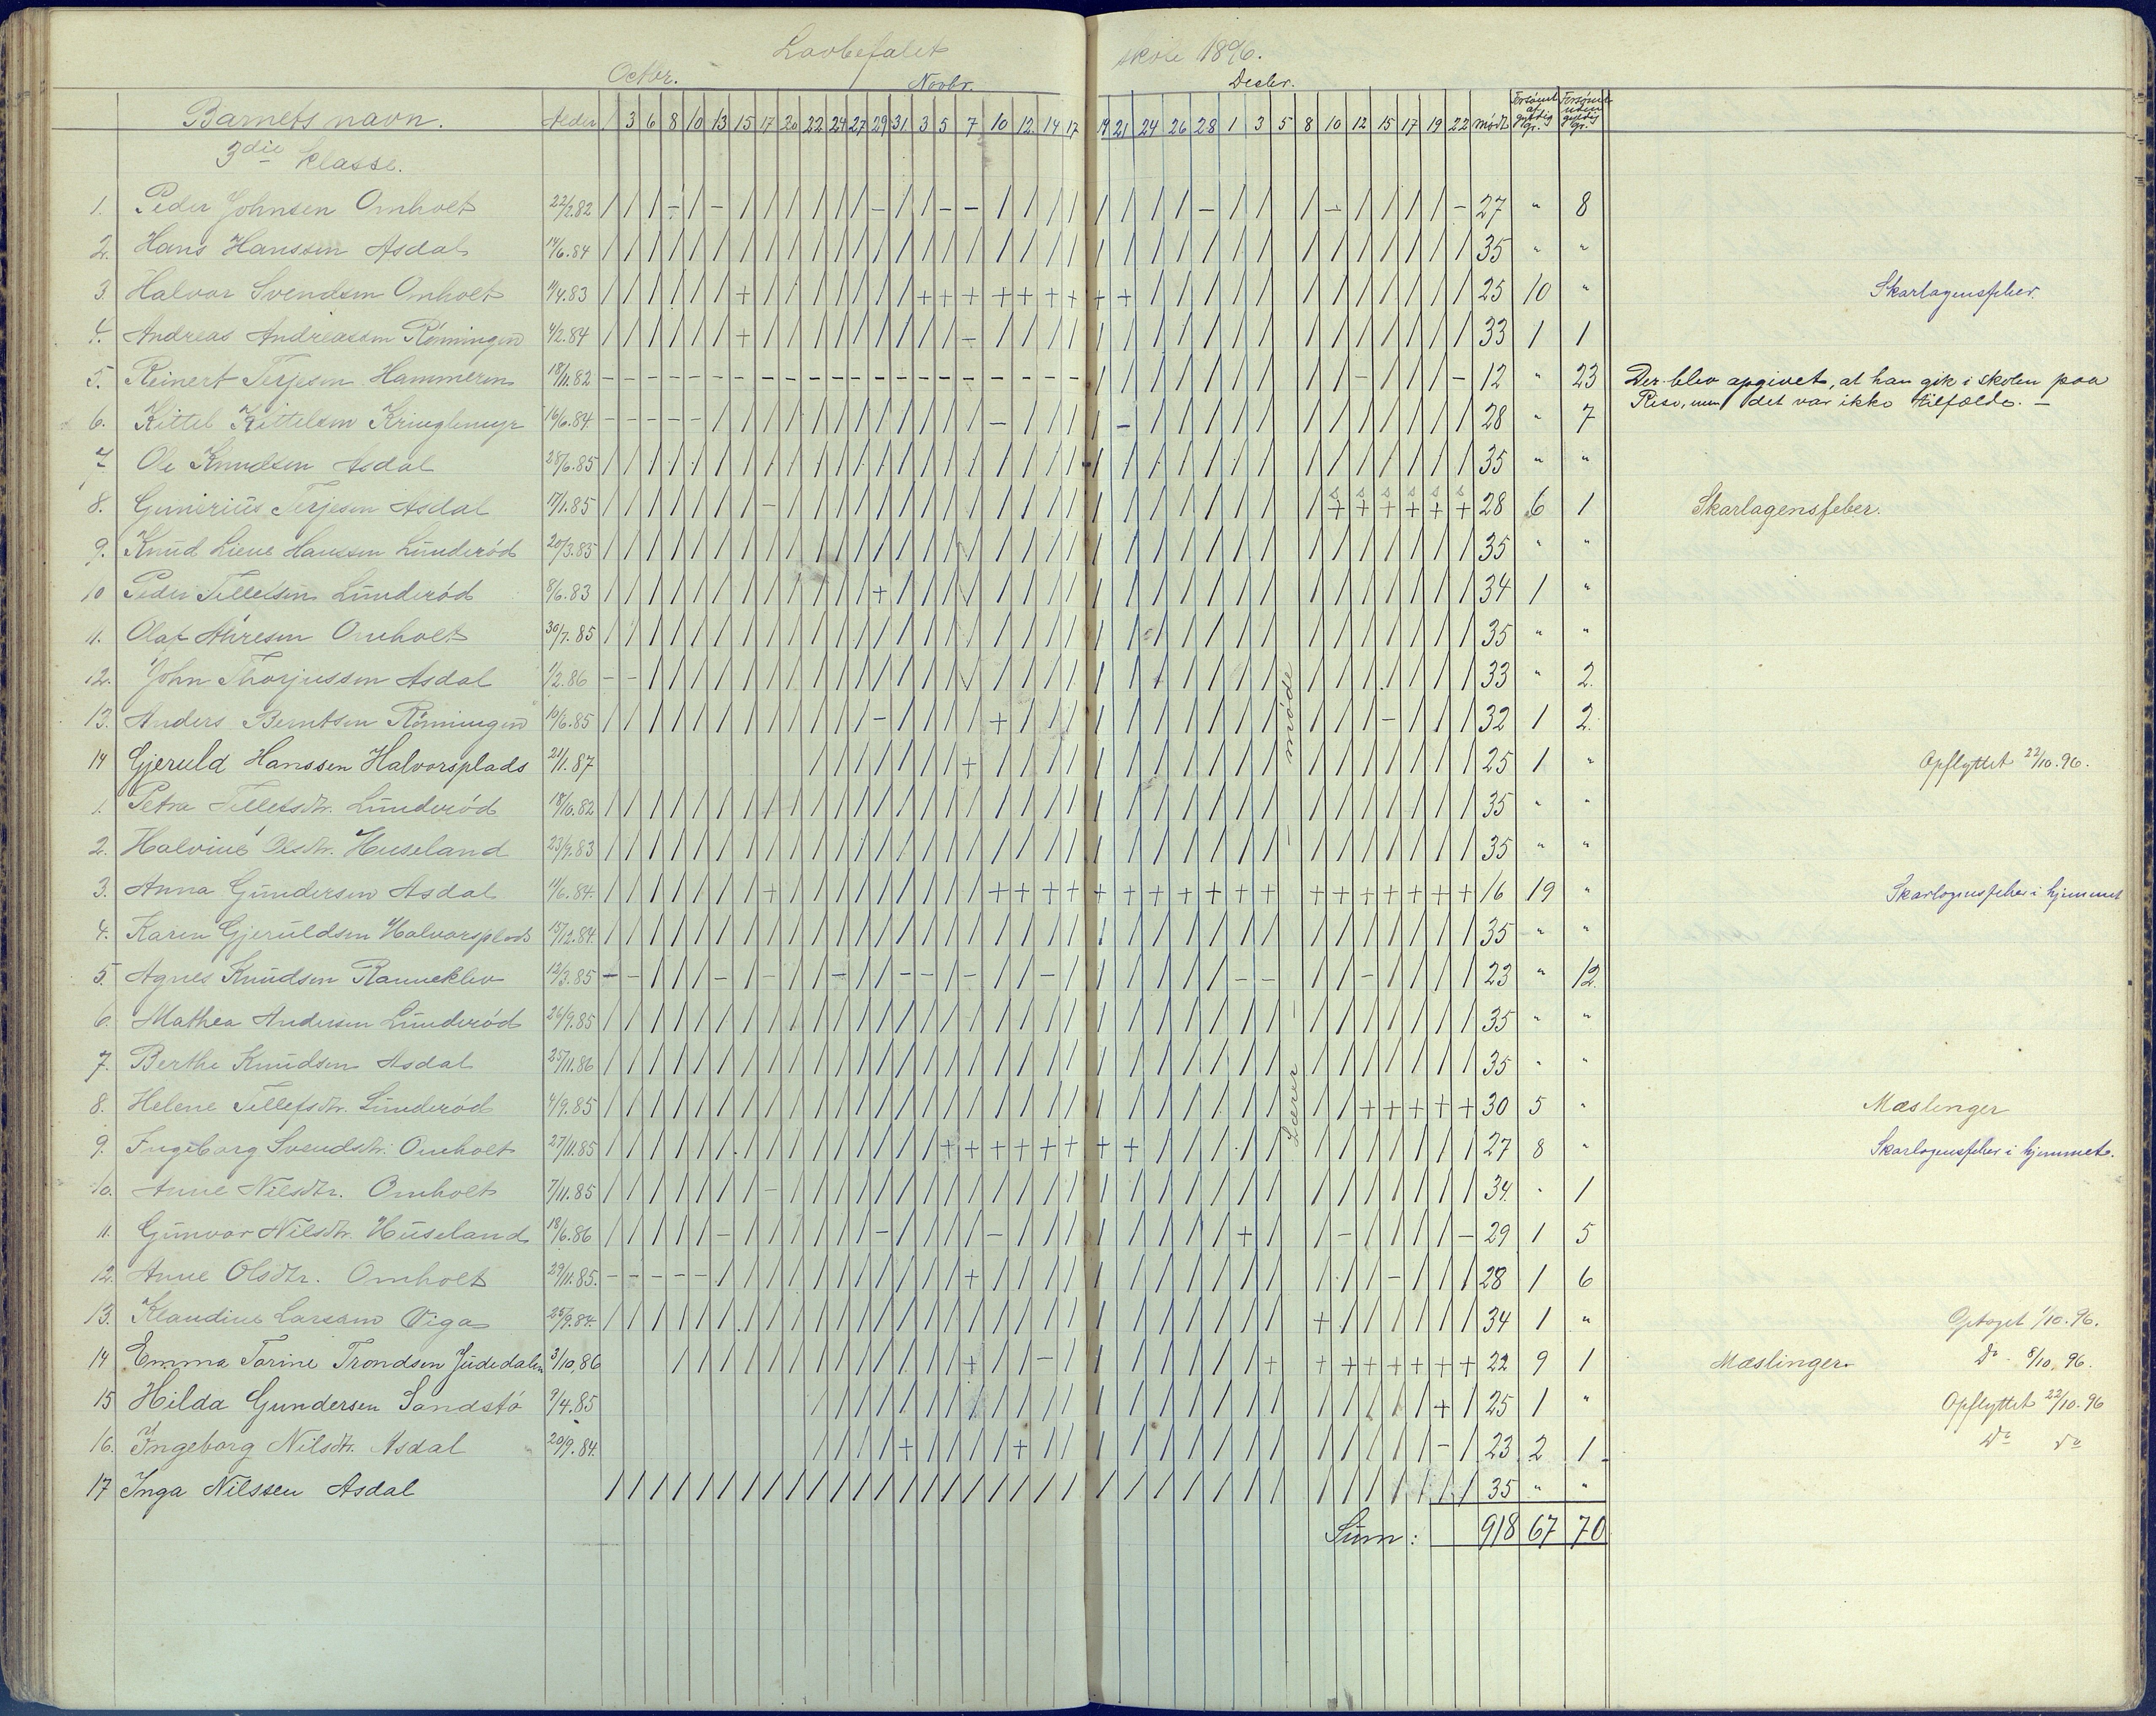 Lovbefalet skole 1896.
Octbr. Novbr. Decbr.
Barnets navn. Alder 1 3 6 8 10 13 15 17 20 22 24 27 29 31 3 5 7 10 12 14 17 19 21 24 26 28 1 3 5 8 10 12 15 17 19 22 mødt Forsømt af gyldig gr. Forsømt uden gyldig gr.
3die klasse.
1. Peder Johnsen Omholt 22/2.82 / / / - / - / / / / / / - / / - - / / / / / / / / - / / / - / / / / - 27 " 8
2. Hans Hanssen Asdal 14/6.84 / / / / / / / / / / / / / / / / / / / / / / / / / / / / / / / / / / / 35 " "
3. Halvor Svendsen Omholt 11/4.83 / / / / / / + / / / / / / / + + + + + + + + + / / / / / / / / / / / / 25 10 " Skarlagensfeber.
4. Andreas Andreassen Rønningen 4/2.84 / / / / / / + / / / / / / / / / - / / / / / / / / / / / / / / / / / / 33 1 1
5. Reinert Terjesen Hammeren 18/11.82 - - - - - - - - - - - - - - - - - - - - - / / / / / / / / / / - / / / - 12 " 23 Der blev opgivet, at han gik i skolen paa
Riso, men det var ikke tilfælde. -
6. Kittel Kittelsen Kringlemyr 16/6.84 - - - - - / / / / / / / / / / / / - / / / / - / / / / / / / / / / / / 28 " 7
7. Ole Knudsen Asdal 28/6.85 / / / / / / / / / / / / / / / / / / / / / / / / / / / / / / / / / / / 35 " "
8. Gunerius Terjesen Asdal 17/1.85 / / / / / / / - / / / / / / / / / / / / / / / / / / / / / + + + + + + 28 6 1 Skarlagensfeber.
9. Knud Liene Hanssen Lunderød 20/3.85 / / / / / / / / / / / / / / / / / / / / / / / / / / / / / / / / / / / 35 " "
10 Peder Tellefsen Lunderød 8/6.83 / / / / / / / / / / / / + / / / / / / / / / / / / / / / / / / / / / / 34 1 "
11. Olaf Aanesen Omholt 30/7.85 / / / / / / / / / / / / / / / / / / / / / / / / / / / / / / / / / / / 35 " "
12. John Thorjussen Asdal 1/2.86 - - / / / / / / / / / / / / / / / / / / / / / / / / / / / / / / / / / 33 " 2.
13. Anders Berntsen Rønningen 10/6.85 / / / / / / / / / / / / - / / / / + / / / / / / / / / / / / / - / / / 32 1 2.
14 Gjeruld Hanssen Halvorsplads 21/1.87 / / / / / / / + / / / / / / / / / / / / / / / / / / 25 1 " Opflyttet 22/10.96.
1. Petra Tellefsdtr. Lunderød 18/10.82 / / / / / / / / / / / / / / / / / / / / / / / / / / / / / / / / / / / 35 " "
2. Halvine Olsdtr. Huseland 23/9.83 / / / / / / / / / / / / / / / / / / / / / / / / / / / / / / / / / / / 35 " "
3. Anna Gundersen Asdal 11/6.84. / / / / / / / + / / / / / / / / / + + + + + + + + + + + + + + + + + + 16 19 " Skarlagensfeber i hjemmet
4. Karen Gjeruldsen Halvorsplads 15/12.84. / / / / / / / / / / / / / / / / / / / / / / / / / / / / / / / / / / / 35 " "
5. Agnes Knudsen Ranneklev 12/3.85 - - / / / - / - / / - / / - - / - / / - / / / / / / - - / / - / / / / 23 " 12.
6. Mathea Andersen Lunderød 26/9.85 / / / / / / / / / / / / / / / / / / / / / / / / / / / / / / / / / / / 35 " "
7. Berthe Knudsen Asdal 25/11.86 / / / / / / / / / / / / / / / / / / / / / / / / / / / / / / / / / / / 35 " "
8. Helene Tellefsdtr. Lunderød 4/9.85 / / / / / / / / / / / / / / / / / / / / / / / / / / / / / / + + + + + 30 5 " Mæslinger
9. Ingeborg Svendsdtr. Omholt 27/11.85 / / / / / / / / / / / / / / / + + + + + + + + / / / / / / / / / / / / 27 8 " Skarlagensfeber i hjemmet.
10. Anne Nilsdtr. Omholt 7/11.85 / / / / / / / - / / / / / / / / / / / / / / / / / / / / / / / / / / / 34. " 1
11. Gunvor Nilsdtr. Huseland 18/6.86 / / / / / - / / / / / / - / / / / - / / / / / / / / + / / - / / / / - 29 1 5
12. Anne Olsdtr. Omholt 29/11.85. - - - - - / / / / / / / / / / / + / / / / / / / / / / / / / / - / / / 28 1 6
13. Klaudine Larssen Viga 25/9.84. / / / / / / / / / / / / / / / / / / / / / / / / / / / / + / / / / / / 34 1 " Optaget 1/10.96.
14 Emma Tarine Trondsen Judedalen 3/10,86 / / / / / / / / / / / / / + / / - / / / / / / / / + + + + + + + + 22 9 1 Mæslinger Do 8/10. 96.
15 Hilda Gundersen Sandstø 9/4.85 / / / / / / / / / / / / / / / / / / / / / / / / + / 25 1 " Opflyttet 22/10.96
16. Ingeborg Nilsdtr. Asdal 20/9.84. / / / / + / / / / + / / / / / / / / / / / / / / - / 23 2 1. Do do
17 Inga Nilssen Asdal / / / / / / / / / / / / / / / / / / / / / / / / / / / / / / / / / / / 35 " "
Lærer - - møde
Sum: 918 67 70